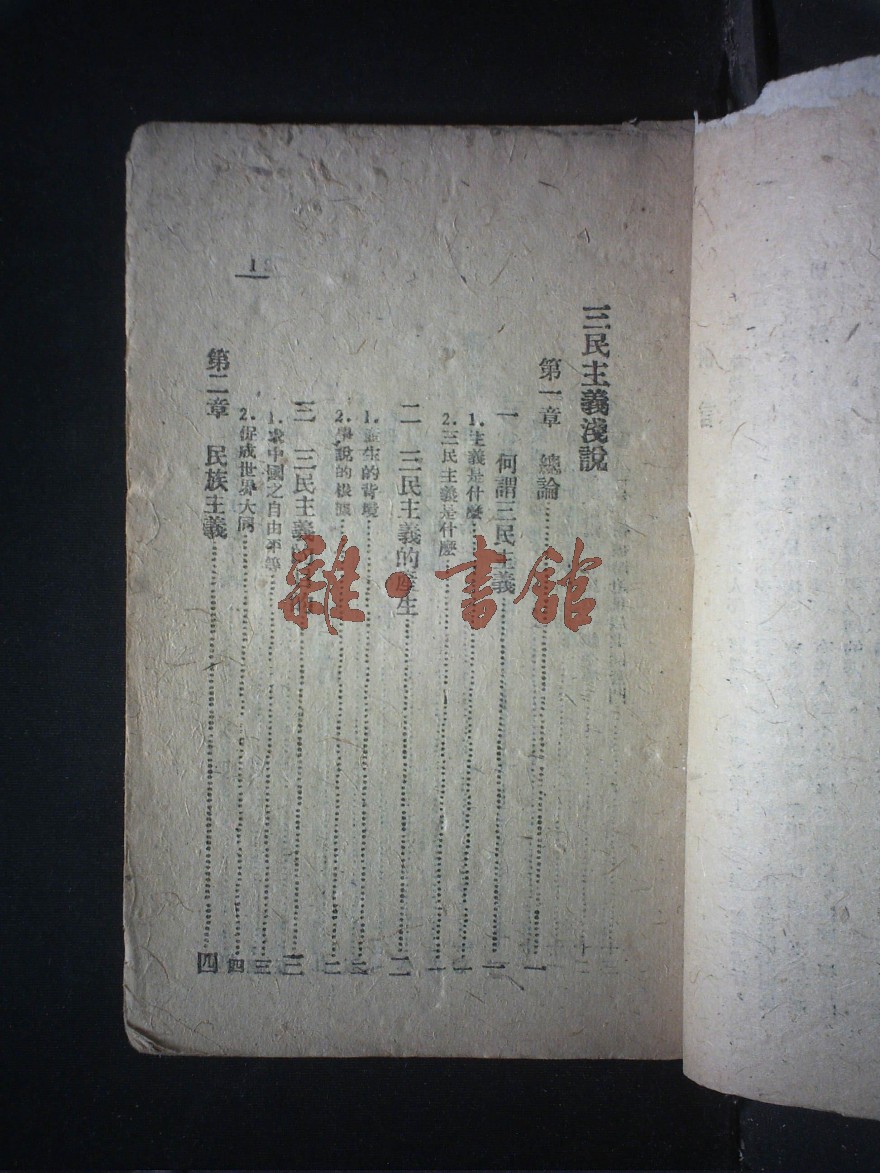 三民主義淺說
第一章 總論……一
一 何謂三民主義……一
1.主義是什麼……一
2.三民主義是什麼……一
二 三民主義的產生……二
1.產生的背境……二
2.學說的根據……二
三 三民主義……三
1.求中國之自由平等……三
2.促成世界大同……四
第二章 民族主義……四
雜·書館